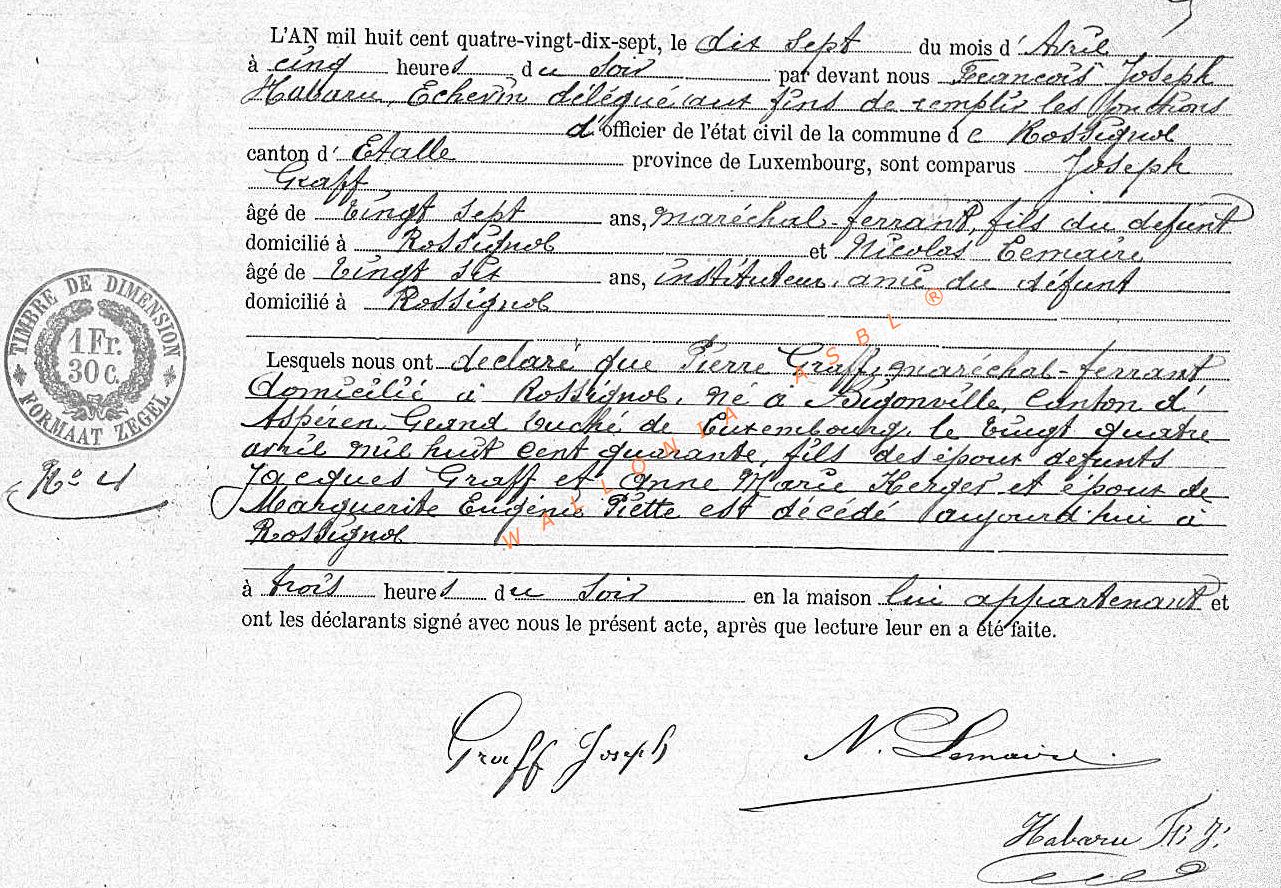 L'AN mil huit cent quatre-vingt-dix-sept, le dix sept du mois d' Avril
à cinq heures du soir par devant nous François Joseph
Habaru, Echevin délégué aux fins de remplir les fonctions
d'officier de l'état civil de la commune de Rossignol
canton d' Etalle province de Luxembourg, sont comparus Joseph
Graff
âgé de vingt sept ans, maréchal-ferrant, fils du defunt
domicilié à Rossignol et Nicolas Lemaire
âgé de vingt six ans, instituteur, ami du défunt
domicilié à Rossignol
Lesquels nous ont declaré que Pierre Graff, maréchal-ferrant
domicilié à Rossignol, né à Bigonville, Canton d'
Aspéren, Grand Duché de Luxembourg, le vingt quatre
avril mil huit cent quarante, fils des époux defunts
Jacques Graff et Anne Marie Herges et époux de
Marguerite Eugénie Piette est décédé aujourd'hui à
Rossignol
à trois heures du soir en la maison lui appartenant et
ont les déclarants signé avec nous le présent acte, après que lecture leur en a été faite.
TIMBRE DE DIMENSION
1 Fr.
30 C.
FORMAAT ZEGEL
No 4
WALLONIA ASBL ®
Graff Joseph
N. Lemaire
Habaru Fs J.